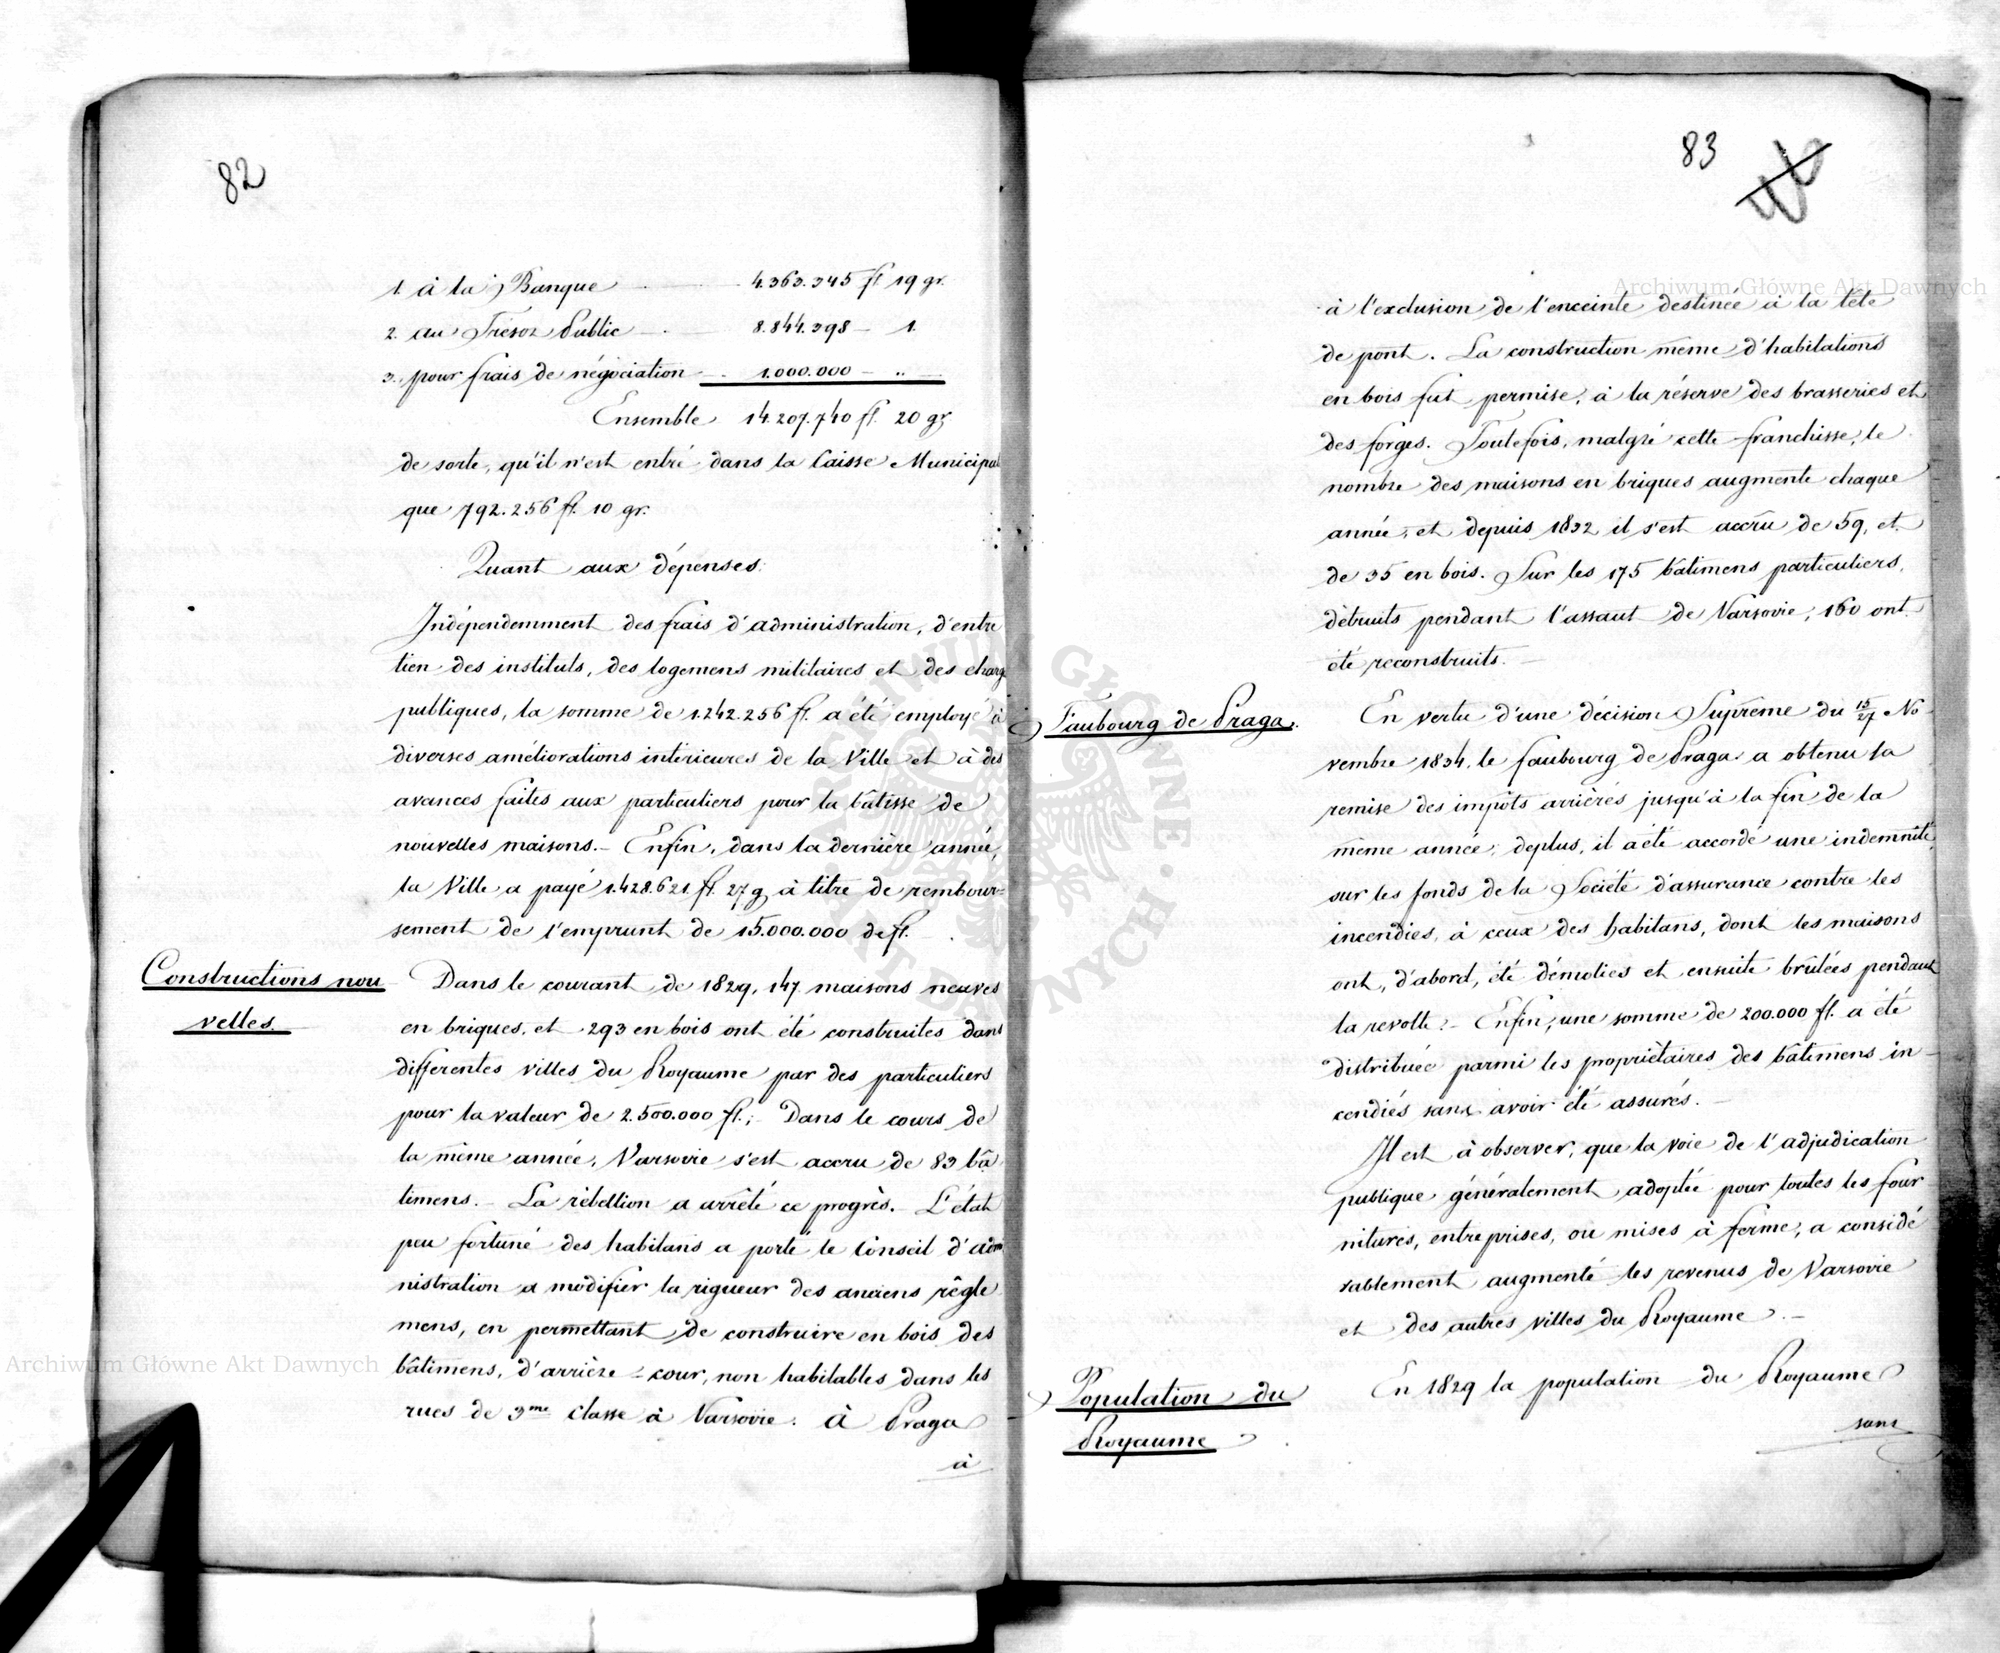 82
1. à la Banque 4.363.345 fl 19 gr.
2. au Trésor Public 8.844.398 — 1.
3. pour frais de négociation 1.000.000 — "
Ensemble 14.207.740 fl. 20 gr
de sorte, qu'il n'est entré dans la Caisse Municipal
que 792.256 fl. 10 gr.
Quant aux dépenses.
Indépendemment des frais d'administration, d'entre
tien des instituts, des logemens militaires et des charg
publiques, la somme de 1.242.256 fl. a été employé à
diverses améliorations intérieures de la Ville et à des
avances faites aux particuliers pour la bâtisse de
nouvelles maisons. — Enfin, dans la dernière année,
la Ville a payé 1.428.621 fl. 27 g. à titre de rembour=
sement de l'emprunt de 15.000.000 de fl.
Constructions nou
velles.
Dans le courant de 1829, 147 maisons neuves
en briques, et 293 en bois ont été construites dans
differentes villes du Royaume par des particuliers
pour la valeur de 2.500.000 fl.; Dans le cours de
la même année, Varsovie s'est accru de 83 bâ
timens. — La rébellion a arrêté ce progrès. L'état
peu fortuné des habitans a porté le Conseil d'adm
nistration a modifier la rigueur des anciens règle
mens, en permettant de construire en bois des
bâtimens, d'arrière-cour, non habitables dans les
rues de 3me Classe à Varsovie. à Praga
à
83
à l'exclusion de l'enceinte destinée à la tête
de pont. La construction même d'habitations
en bois fut permise, à la réserve des brasseries et
des forges. Toutefois, malgré cette franchisse, le
nombre des maisons en briques augmente chaque
année, et depuis 1832 il s'est accru de 59, et
de 35 en bois. Sur les 175 bâtimens particuliers,
détruits pendant l'assaut de Varsovie, 160 ont
été reconstruits. —
Faubourg de Praga.
En vertu d'une décision Suprême du 15/27 No
vembre 1834, le faubourg de Praga a obtenu la
remise des impôts arriérés jusqu'à la fin de la
même année; deplus, il a été accordé une indemnité,
sur les fonds de la Société d'assurance contre les
incendies, à ceux des habitans, dont les maisons
ont, d'abord, été démolies et ensuite brûlées pendant
la revolte. — Enfin, une somme de 200.000 fl. a été
distribuée parmi les propriétaires des bâtimens in
cendiés sans avoir été assurés. —
Il est à observer, que la voie de l'adjudication
publique généralement adoptée pour toutes les four
nitures, entreprises, ou mises à ferme, a considé
rablement augmenté les revenus de Varsovie
et des autres villes du Royaume. —
Population du
Royaume
En 1829 la population du Royaume
sans
Archiwum Główne Akt Dawnych
Archiwum Główne Akt Dawnych